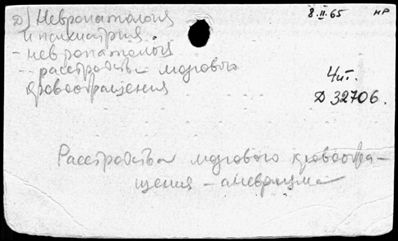 8.II.65 нр
д) Невропатология
и психиатрия.
- невропатология
- расстройства мозгового
кровообращения
4и.
Д 32706.
Расстройства мозгового кровообра-
щения - аневризма